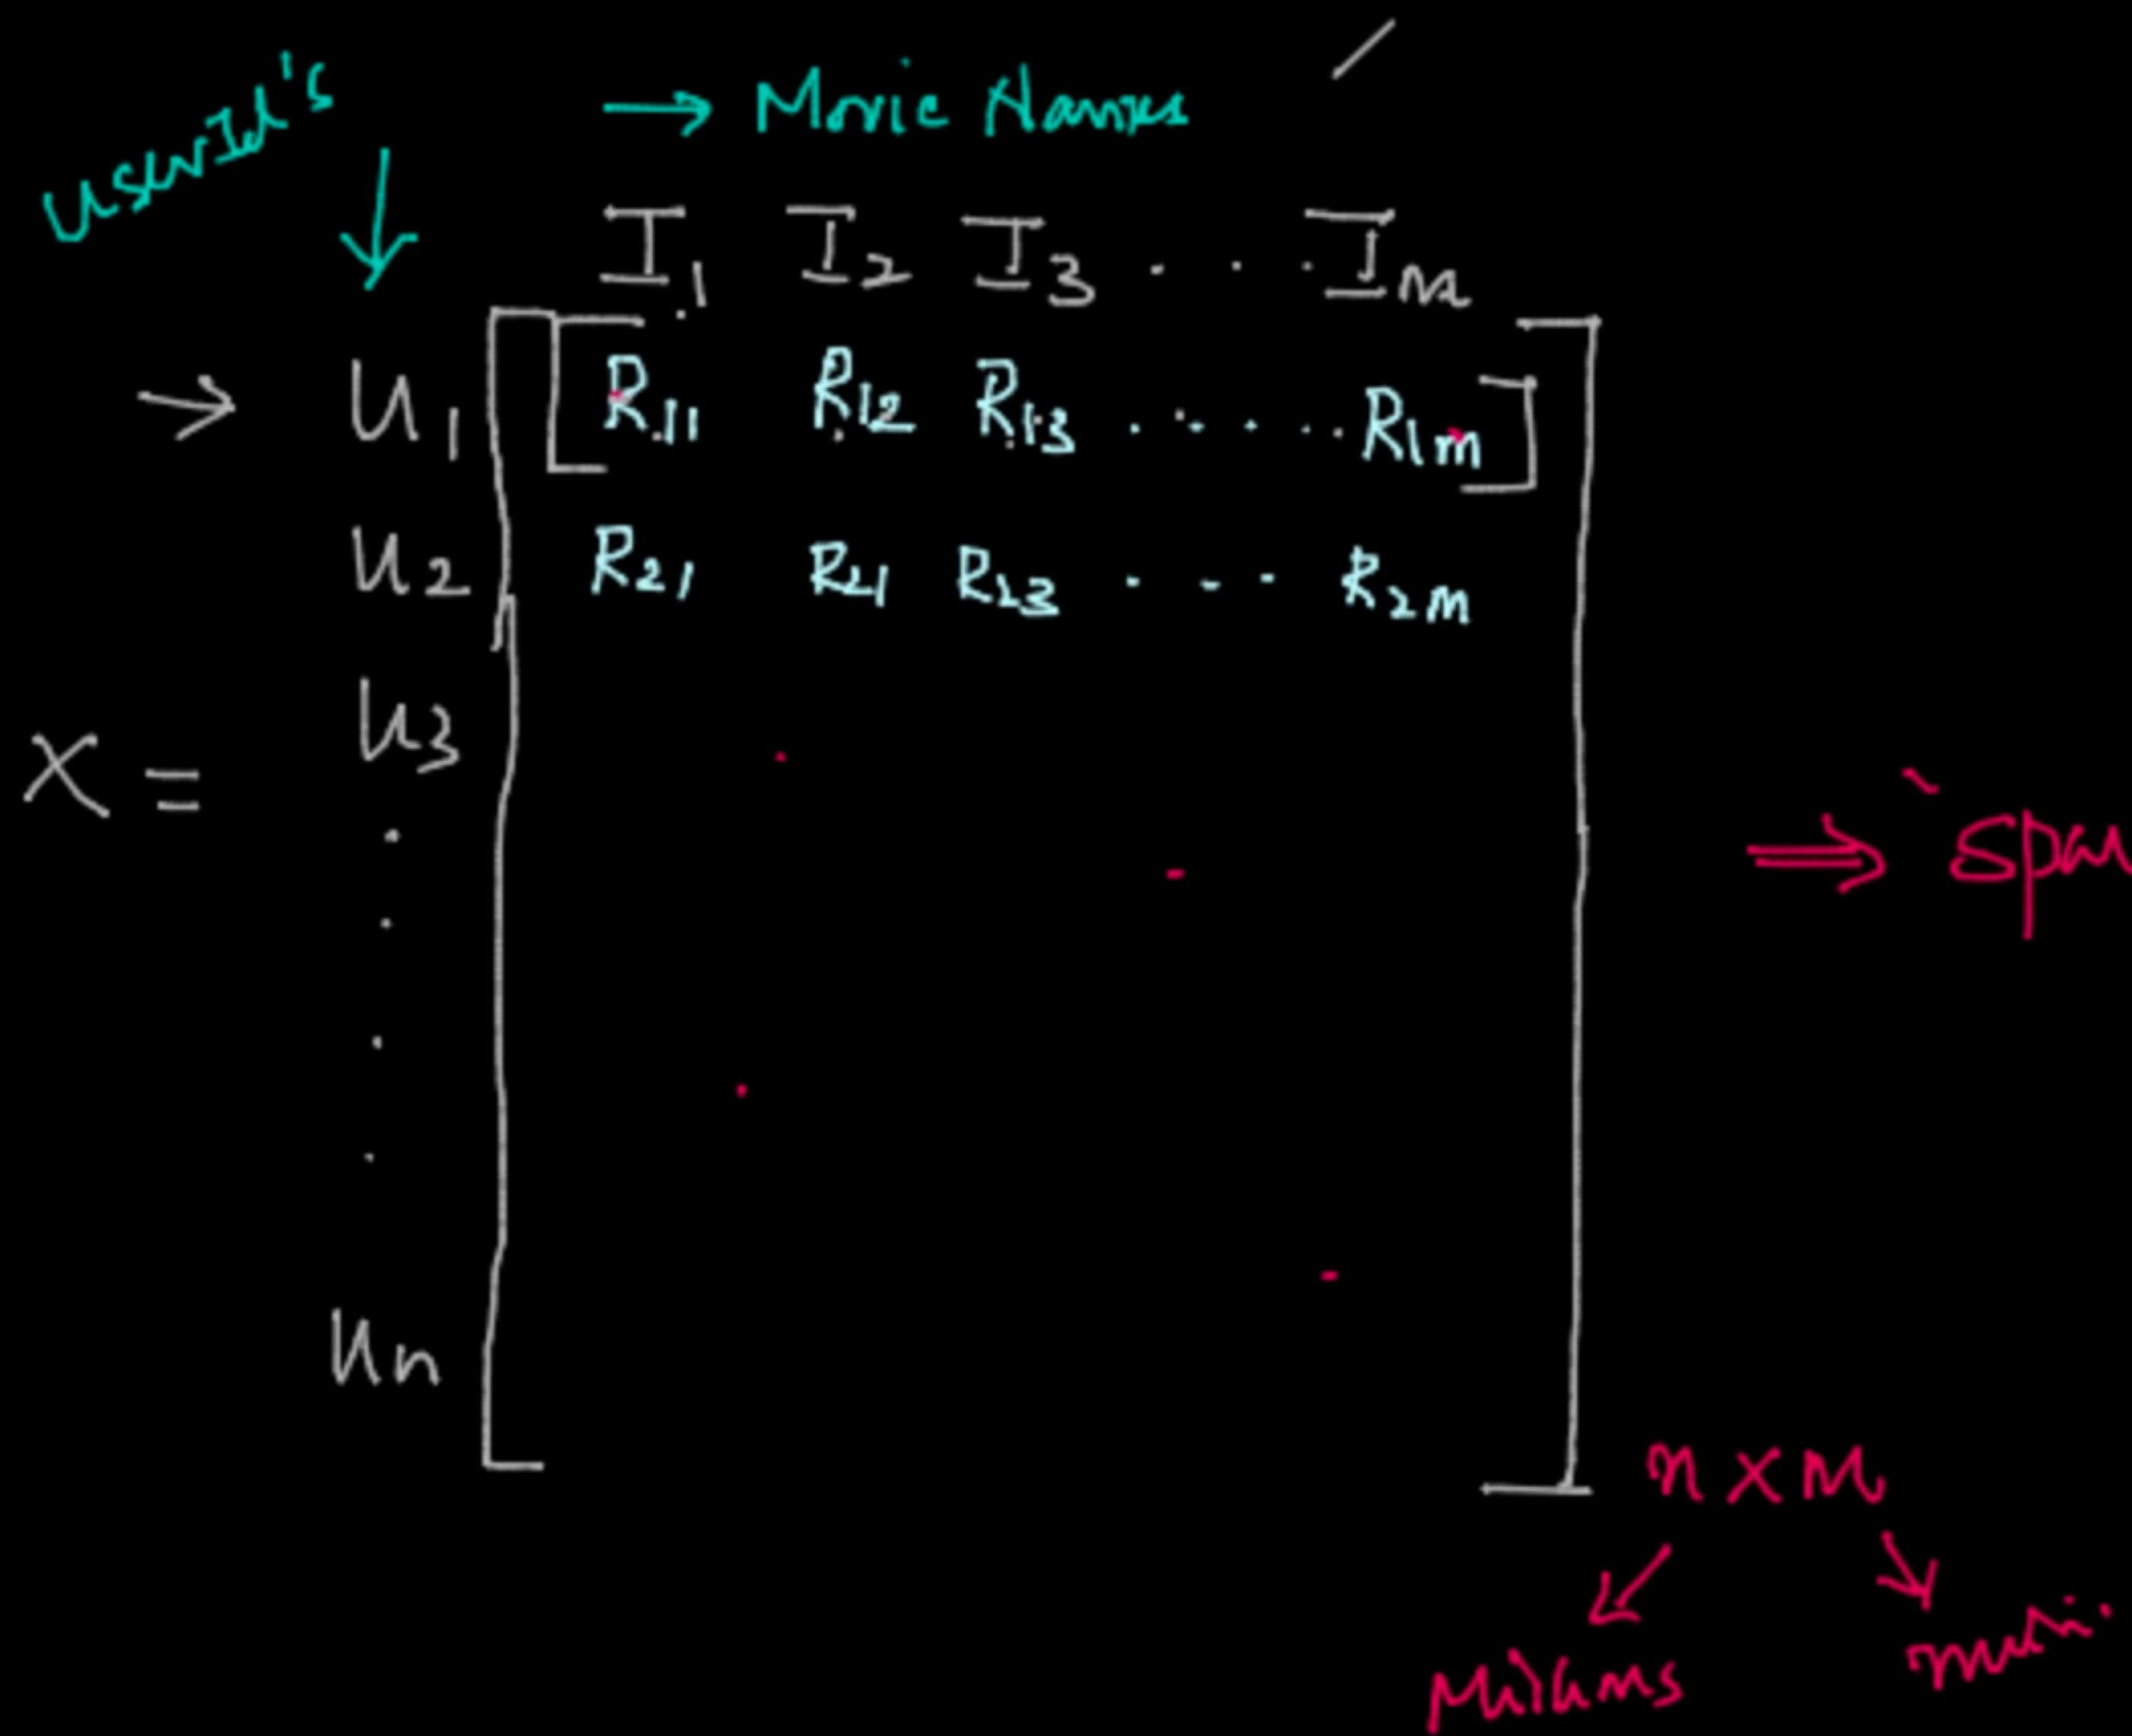 UserId's
→ Movie Names
I1 I2 I3 . . . Im
→ U1 R11 R12 R13 . . . . . R1m
U2 R21 R21 R23 . . . R2m
U3
X =
⇒ Spa
Un
n x m
Millions